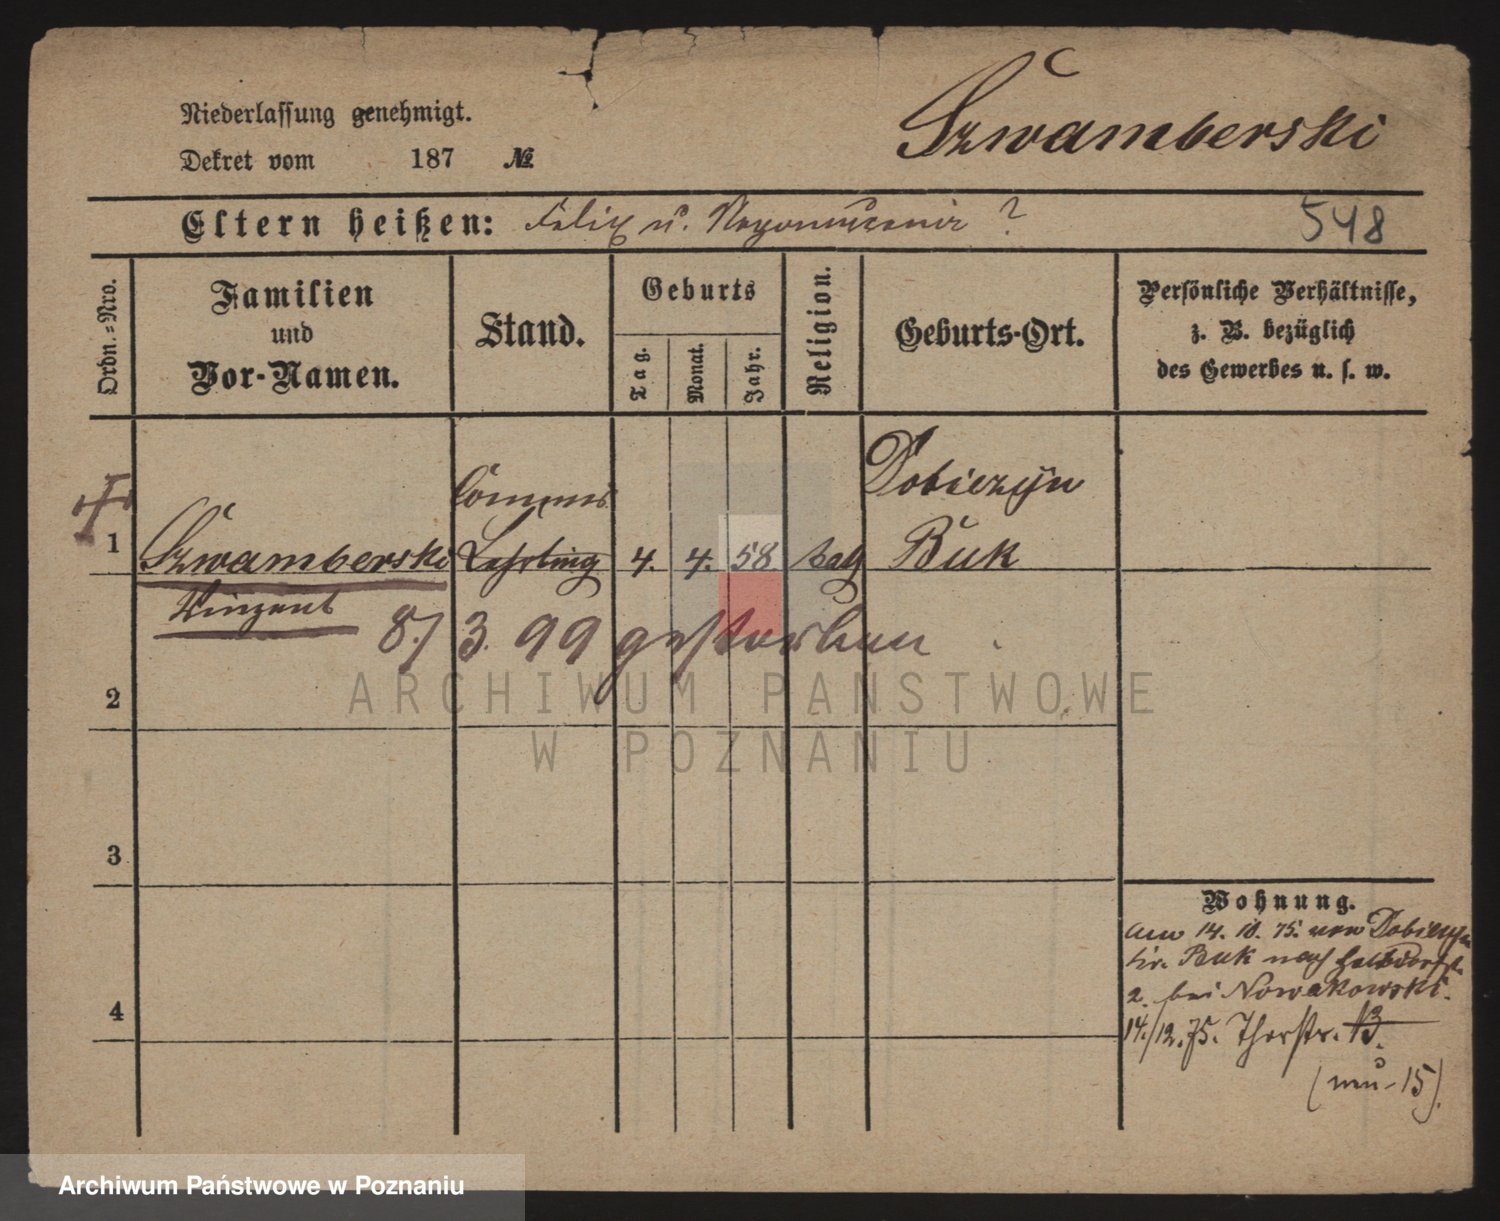 Szwamberski
Niederlassung genehmigt.
Dekret vom 187 №
Eltern heißen: Felix u. Nepomucenia ?
548
Ordn.-Nro.
Familien
und
Vor-Namen.
Stand.
Geburts
Tag.
Monat.
Jahr.
Religion.
Geburts-Ort.
Persönliche Verhältnisse,
z. B. bezüglich
des Gewerbes u. s. w.
Dobiezyn
Commis
1 Szwamberski Lehrling 4. 4. 58 kath Buk
Vinzent
8./3. 99 gestorben
2
3
4
Wohnung.
am 14. 10. 75. von Dobiezyn
Kr. Buk nach Halbdorfst.
2. bei Nowakowski.
14./12. 75. Thorstr. 13.
(neu - 15).
ARCHIWUM PAŃSTWOWE
W POZNANIU
Archiwum Państwowe w Poznaniu